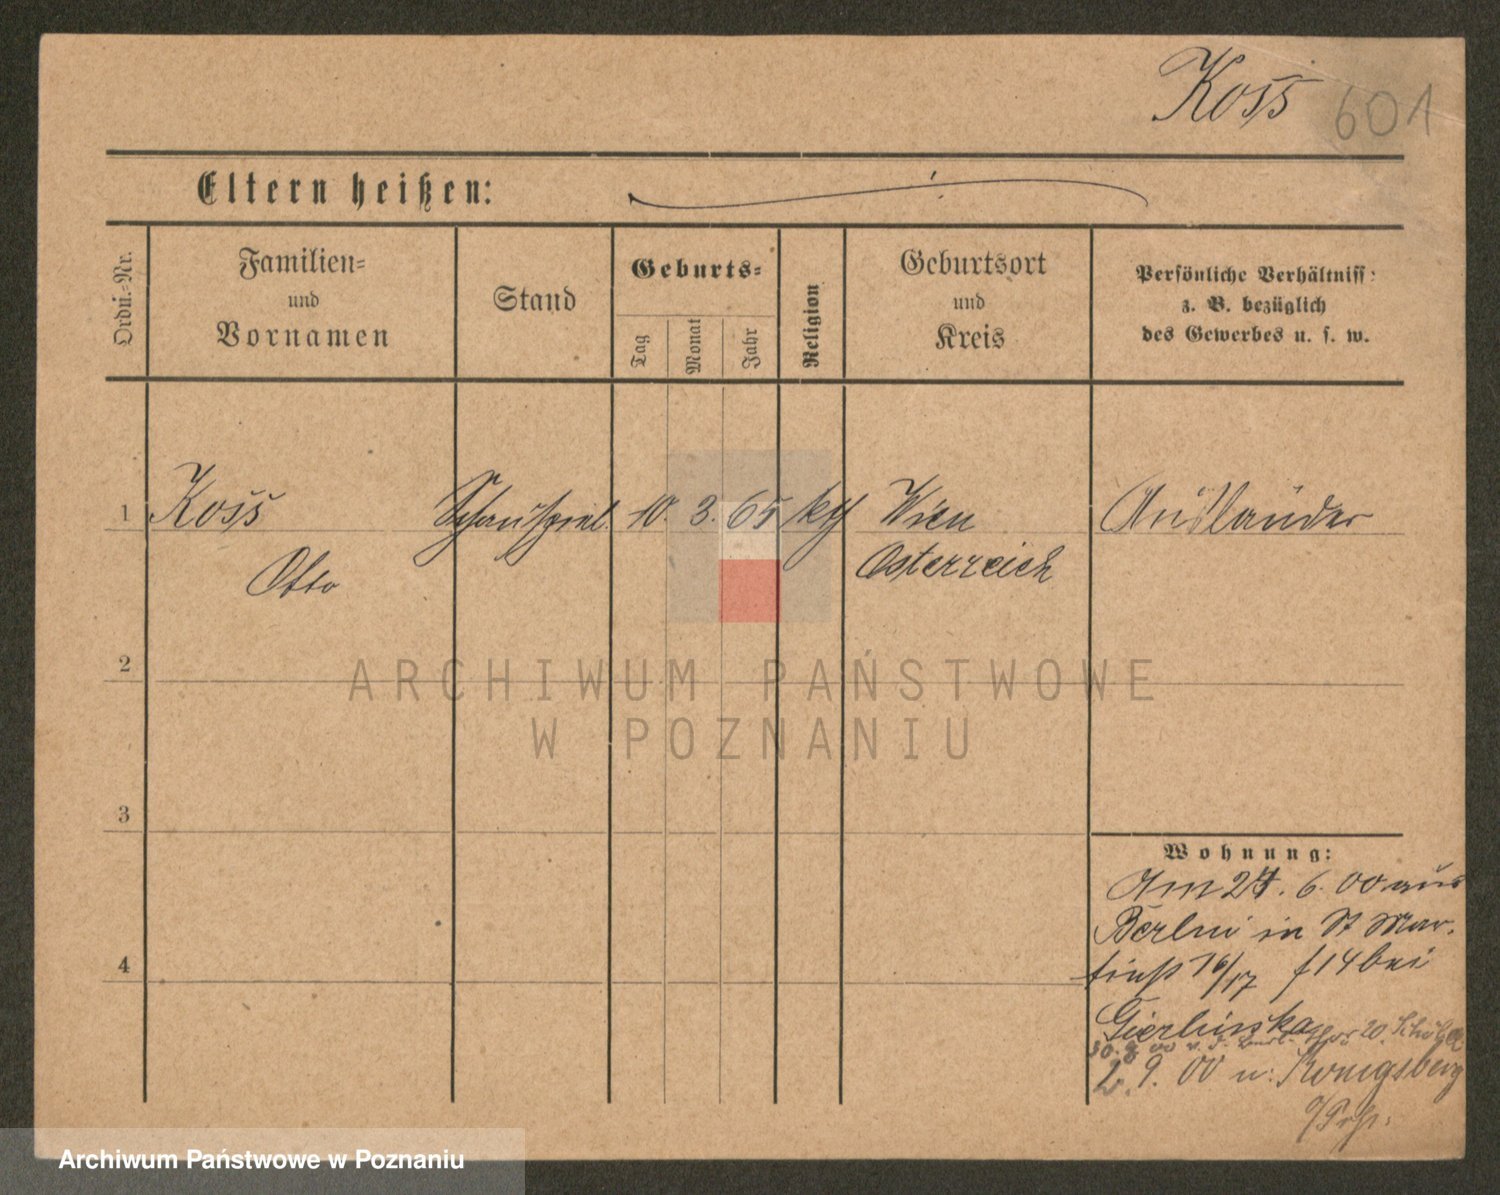 Koss 601
Eltern heißen:
Ordn.-Nr.
Familien-
und
Vornamen
Stand
Geburts-
Tag
Monat
Jahr
Religion
Geburtsort
und
Kreis
Persönliche Verhältniss:
z. B. bezüglich
des Gewerbes u. s. w.
1 Koss Schauspiel. 10. 3. 65 kth Wien Ausländer
Otto Osterreich
2
ARCHIWUM PAŃSTWOWE
W POZNANIU
3
4
Wohnung:
Am 27. 6. 00 aus
Berlin in St Mar-
tinstr 16/17 f 14 bei
Gierlinska
2. 9. 00 n. Königsberg
o/Prß.
Archiwum Państwowe w Poznaniu